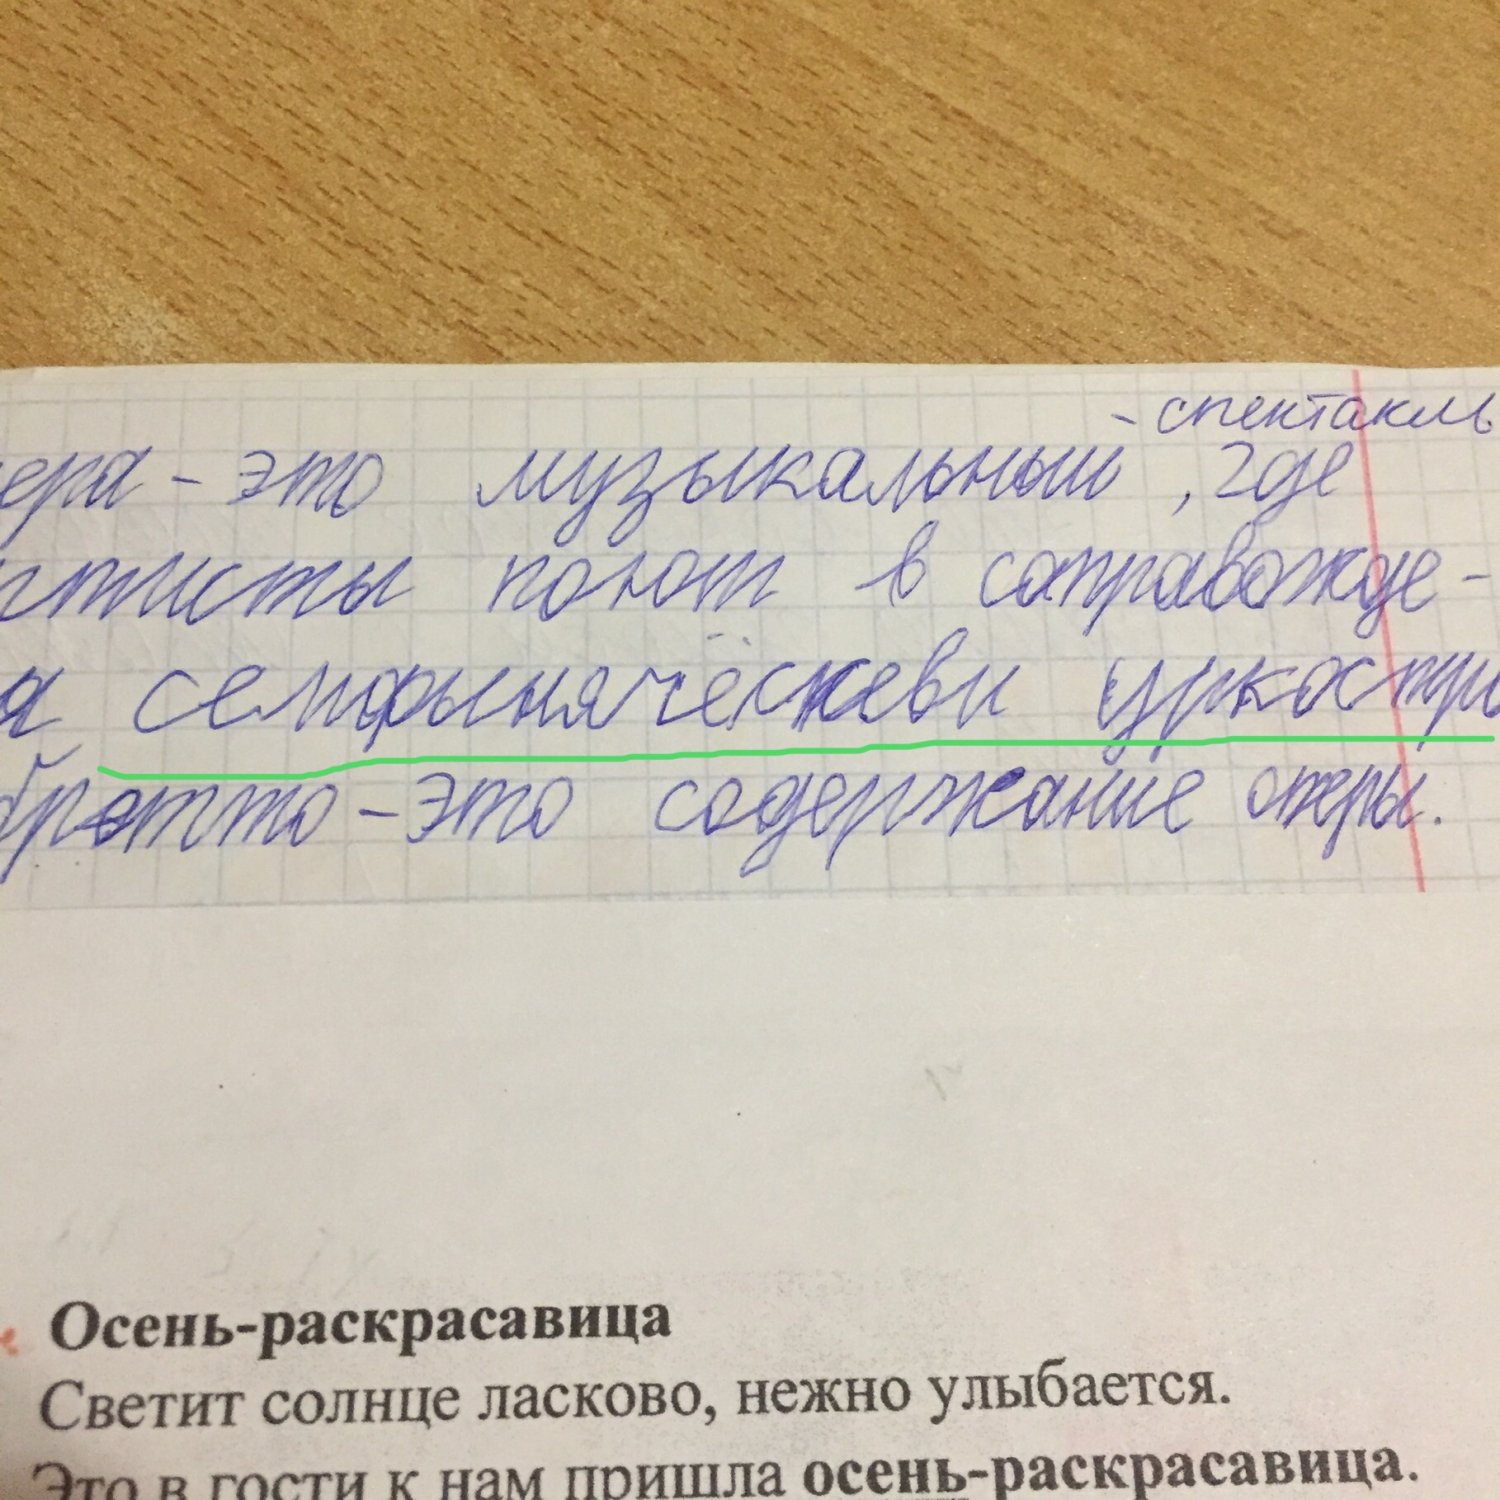 - спектакль
ера - это музыкальный , где
ртисты поют в саправожде -
я семфыняческеви уркостри
бретто - это содержание оперы.
Осень-раскрасавица
Светит солнце ласково, нежно улыбается.
Это в гости к нам пришла осень-раскрасавица.